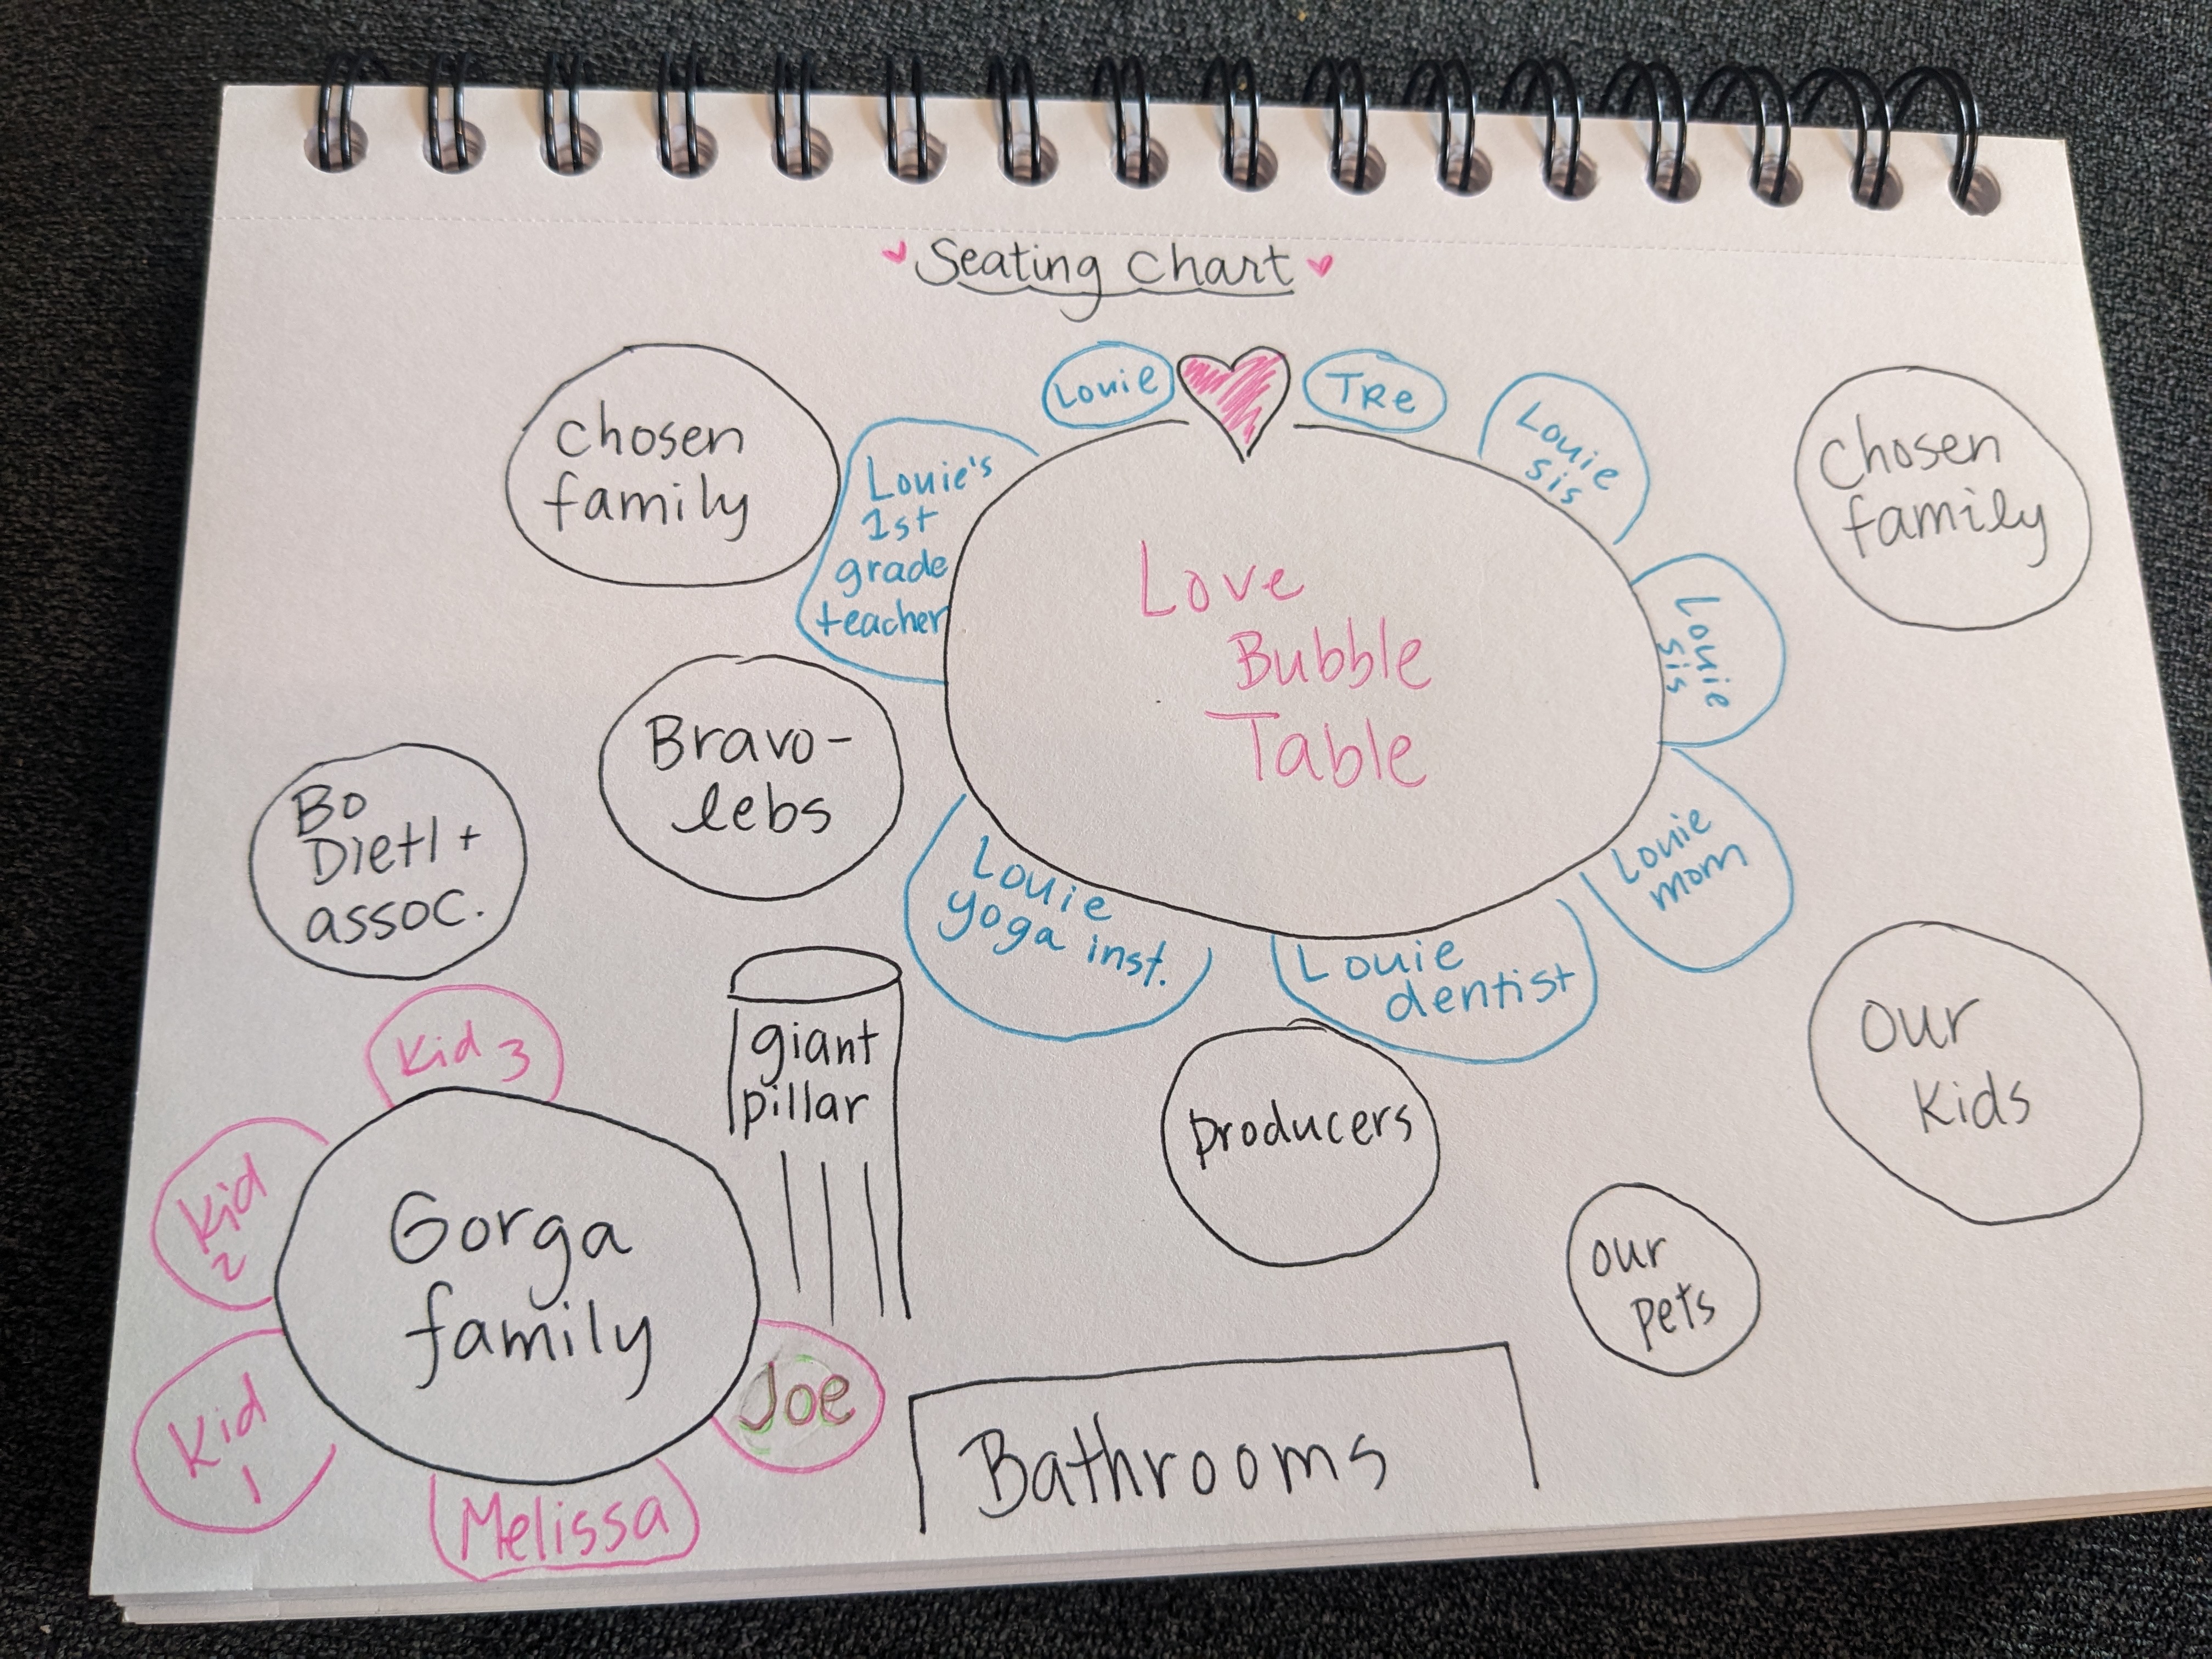 Seating Chart
Louie
TRe
Louie
sis
Louie
sis
Louie
mom
Louie
dentist
Louie
yoga inst.
Louie's
1st
grade
teacher
Love
Bubble
Table
Chosen
family
Chosen
family
Bravo-
lebs
Bo
Dietl +
assoc.
giant
pillar
producers
our
Kids
our
pets
Kid 3
Kid
2
Kid
1
Gorga
family
Joe
Melissa
Bathrooms